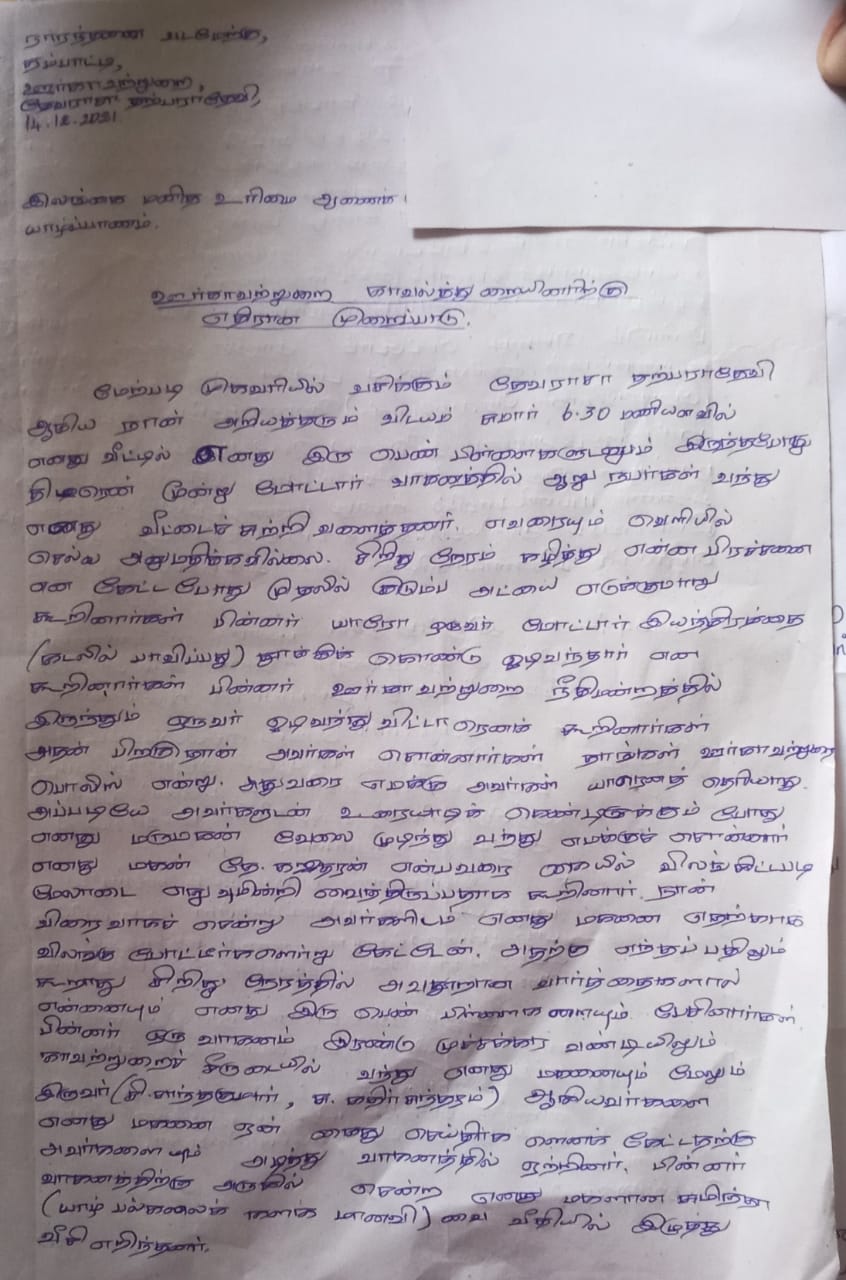 நாரந்தனை வடமேற்கு,
தம்பாட்டி,
ஊர்காவற்றுறை,
தேவராசா தற்பராதேவி,
14.12.2021
இலங்கை மனித உரிமை ஆணைக்
யாழ்ப்பாணம்.
ஊர்காவற்றுறை காவல்த்துறையினரிற்கு
எதிரான முறைப்பாடு.
மேற்படி முகவரியில் வசிக்கும் தேவராசா தற்பராதேவி
ஆகிய நான் அறியத்தரும் விடயம் சுமார் 6.30 மணியளவில்
எனது வீட்டில் எனது இரு பெண் பிள்ளைகளுடனும் இருந்தபோது
திடீரென் மூன்று மோட்டார் வாகனத்தில் ஆறு நபர்கள் வந்து
எனது வீட்டைச் சுற்றி வளைத்தனர். எவரையும் வெளியில்
செல்ல அனுமதிக்கவில்லை. சிறிது நேரம் கழித்து என்ன பிரச்சனை
என கேட்ட போது முதலில் குடும்ப அட்டையை எடுக்குமாறு
கூறினார்கள் பின்னர் யாரோ ஒருவர் மோட்டார் இயந்திரத்தை
(கடலில் பாவிப்பது) தூக்கிக் கொண்டு ஓடிவந்தார் என
கூறினார்கள் பின்னர் ஊர்காவற்றுறை நீதிமன்றத்தில்
இருந்தும் ஒருவர் ஓடிவந்து விட்டாரெனக் கூறினார்கள்
அதன் பிறகுதான் அவர்கள் சொன்னார்கள் தாங்கள் ஊர்காவற்றுறை
பொலிஸ் என்று. அதுவரை எமக்கு அவர்கள் யாரெனத் தெரியாது.
அப்படியே அவர்களுடன் உரையாடிக் கொண்டிருக்கும் போது
எனது மருமகன் வேலை முடிந்து வந்து எமக்குச் சொன்னார்
எனது மகன் தே. என்பவரை கையில் விலங்கிட்டபடி
மேலாடை எதுவுமின்றி வைத்திருப்பதாக கூறினார். நான்
விரைவாகச் சென்று அவர்களிடம் எனது மகனை எதற்காக
விலங்கு போட்டீர்களென்று கேட்டேன். அதற்கு எந்தப் பதிலும்
கூறாது சிறிது நேரத்தில் அவதூறான வார்த்தைகளால்
என்னையும் எனது இரு பெண் பிள்ளைகளையும் பேசினார்கள்.
பின்னர் ஒரு வாகனம் இரண்டு முச்சக்கர வண்டியிலும்
காவற்றுறைச் சீருடையில் வந்து எனது மகனையும் மேலும்
இருவர் (சி.சாந்தகுமார், ச. கதிர்சுந்தரம்) ஆகியவர்களை
எனது மகனை ஏன் கைது செய்தீர்களெனக் கேட்டதற்கு
அவர்களையும் அடித்து வாகனத்தில் ஏற்றினர். பின்னர்
வாகனத்திற்கு அருகில் சென்ற எனது மகளான சுமித்தா
(யாழ் பல்கலைக் கழக மாணவி) வை வீதியில் இழுத்து
வீசி எறிந்தனர்.